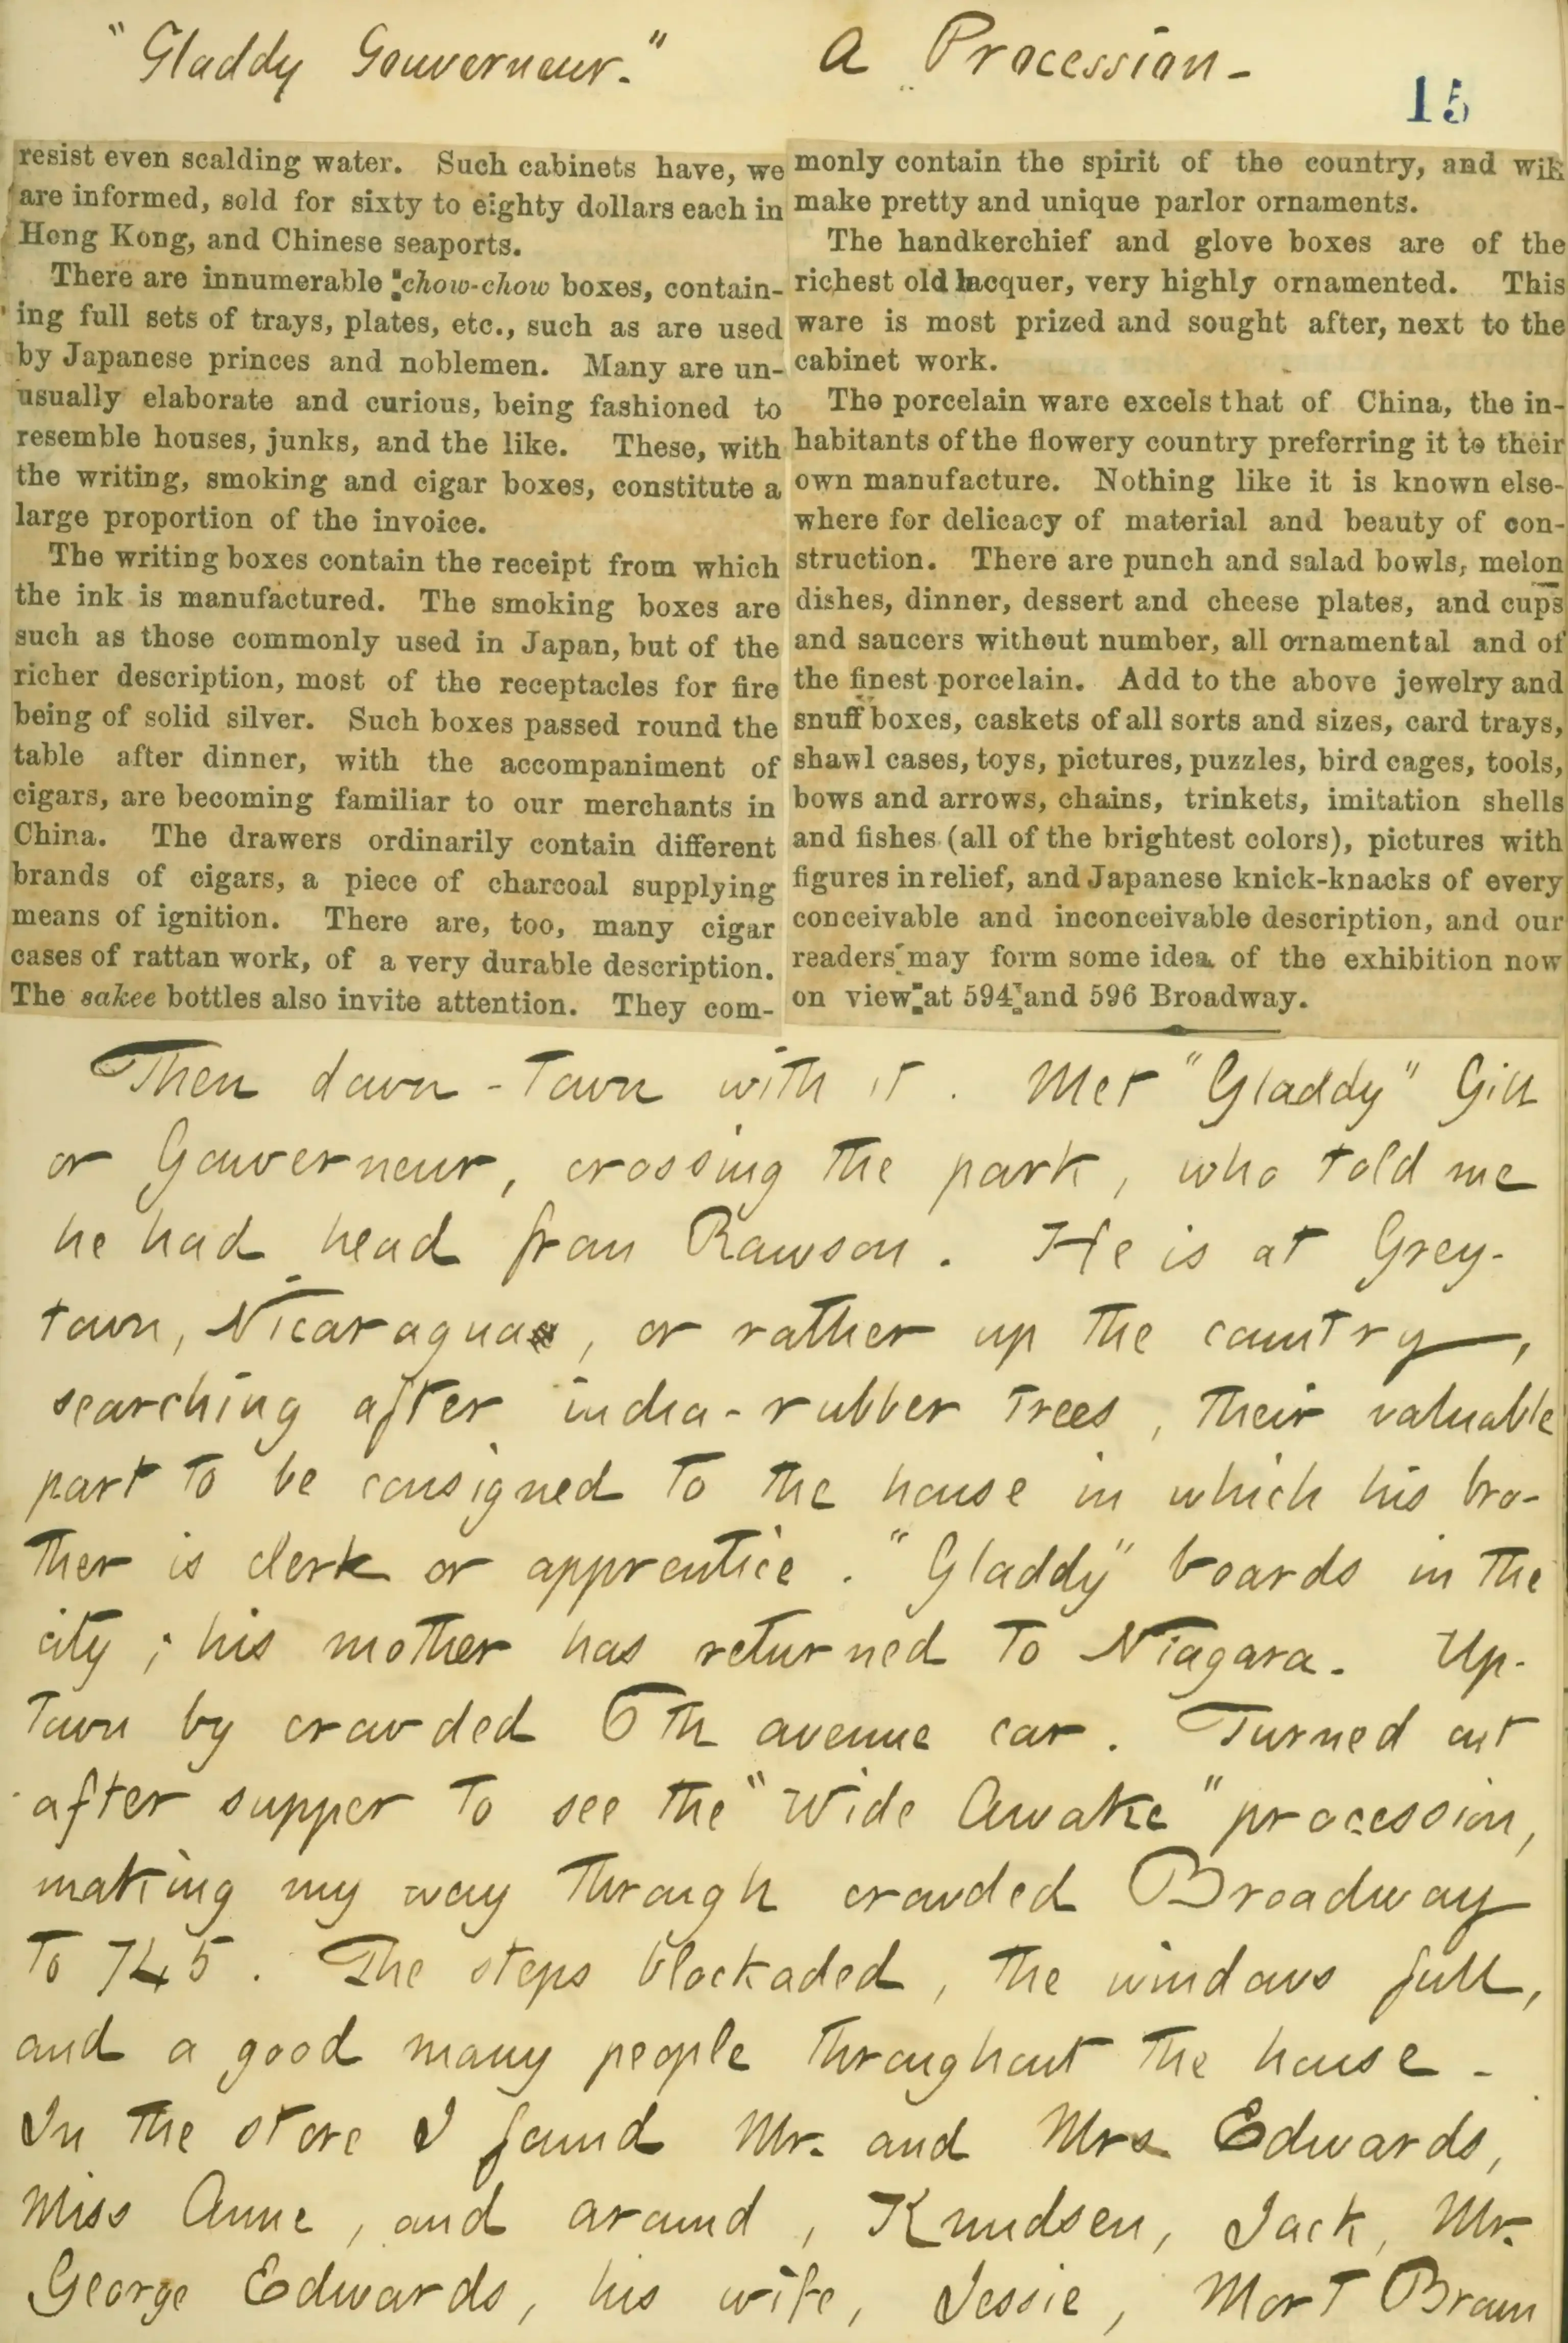 "Gladdy Gouverneur." A Procession-
15
resist even scalding water. Such cabinets have, we
are informed, sold for sixty to eighty dollars each in
Hong Kong, and Chinese seaports.
There are innumerable chow-chow boxes, contain-
ing full sets of trays, plates, etc., such as are used
by Japanese princes and noblemen. Many are un-
usually elaborate and curious, being fashioned to
resemble houses, junks, and the like. These, with
the writing, smoking and cigar boxes, constitute a
large proportion of the invoice.
The writing boxes contain the receipt from which
the ink is manufactured. The smoking boxes are
such as those commonly used in Japan, but of the
richer description, most of the receptacles for fire
being of solid silver. Such boxes passed round the
table after dinner, with the accompaniment of
cigars, are becoming familiar to our merchants in
China. The drawers ordinarily contain different
brands of cigars, a piece of charcoal supplying
means of ignition. There are, too, many cigar
cases of rattan work, of a very durable description.
The sakee bottles also invite attention. They com-
monly contain the spirit of the country, and will
make pretty and unique parlor ornaments.
The handkerchief and glove boxes are of the
richest old lacquer, very highly ornamented. This
ware is most prized and sought after, next to the
cabinet work.
The porcelain ware excels that of China, the in-
habitants of the flowery country preferring it to their
own manufacture. Nothing like it is known else-
where for delicacy of material and beauty of con-
struction. There are punch and salad bowls, melon
dishes, dinner, dessert and cheese plates, and cups
and saucers without number, all ornamental and of
the finest porcelain. Add to the above jewelry and
snuff boxes, caskets of all sorts and sizes, card trays,
shawl cases, toys, pictures, puzzles, bird cages, tools,
bows and arrows, chains, trinkets, imitation shells
and fishes (all of the brightest colors), pictures with
figures in relief, and Japanese knick-knacks of every
conceivable and inconceivable description, and our
readers may form some idea of the exhibition now
on view at 594 and 596 Broadway.
Then down-town with it. Met "Gladdy" Gill
or Gouverneur, crossing the park, who told me
he had head from Rawson. He is at Grey-
town, Nicaragua, or rather up the country,
searching after india-rubber trees, their valuable
part to be consigned to the house in which his bro-
ther is clerk or apprentice. "Gladdy" boards in the
city; his mother has returned to Niagara. Up-
town by crowded 6th avenue car. Turned out
after supper to see the "Wide Awake" procession,
making my way through crowded Broadway
to 745. The steps blockaded, the windows full,
and a good many people throughout the house-
In the store I found Mr. and Mrs Edwards,
Miss Anne, and around, Knudsen, Jack, Mr.
George Edwards, his wife, Jessie, Mort Brown